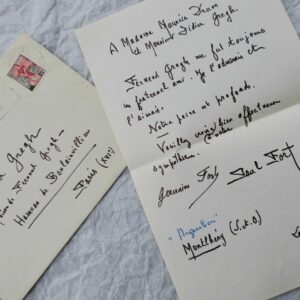 A Madame Maurice Druon
et Monsieur Didier Gregh.
Fernand Gregh me fut toujours
un fraternel ami. Je l'admirais et
l'aimais.
Notre peine est profonde.
Veuillez croire bien affectueuse
sympathie.
Germaine Fort Paul Fort
"Argenlieu"
Montlhéry (S.&O.)
Gregh
de Fernand Gregh
Hameau de Boulainvilliers
Paris (XVIe)